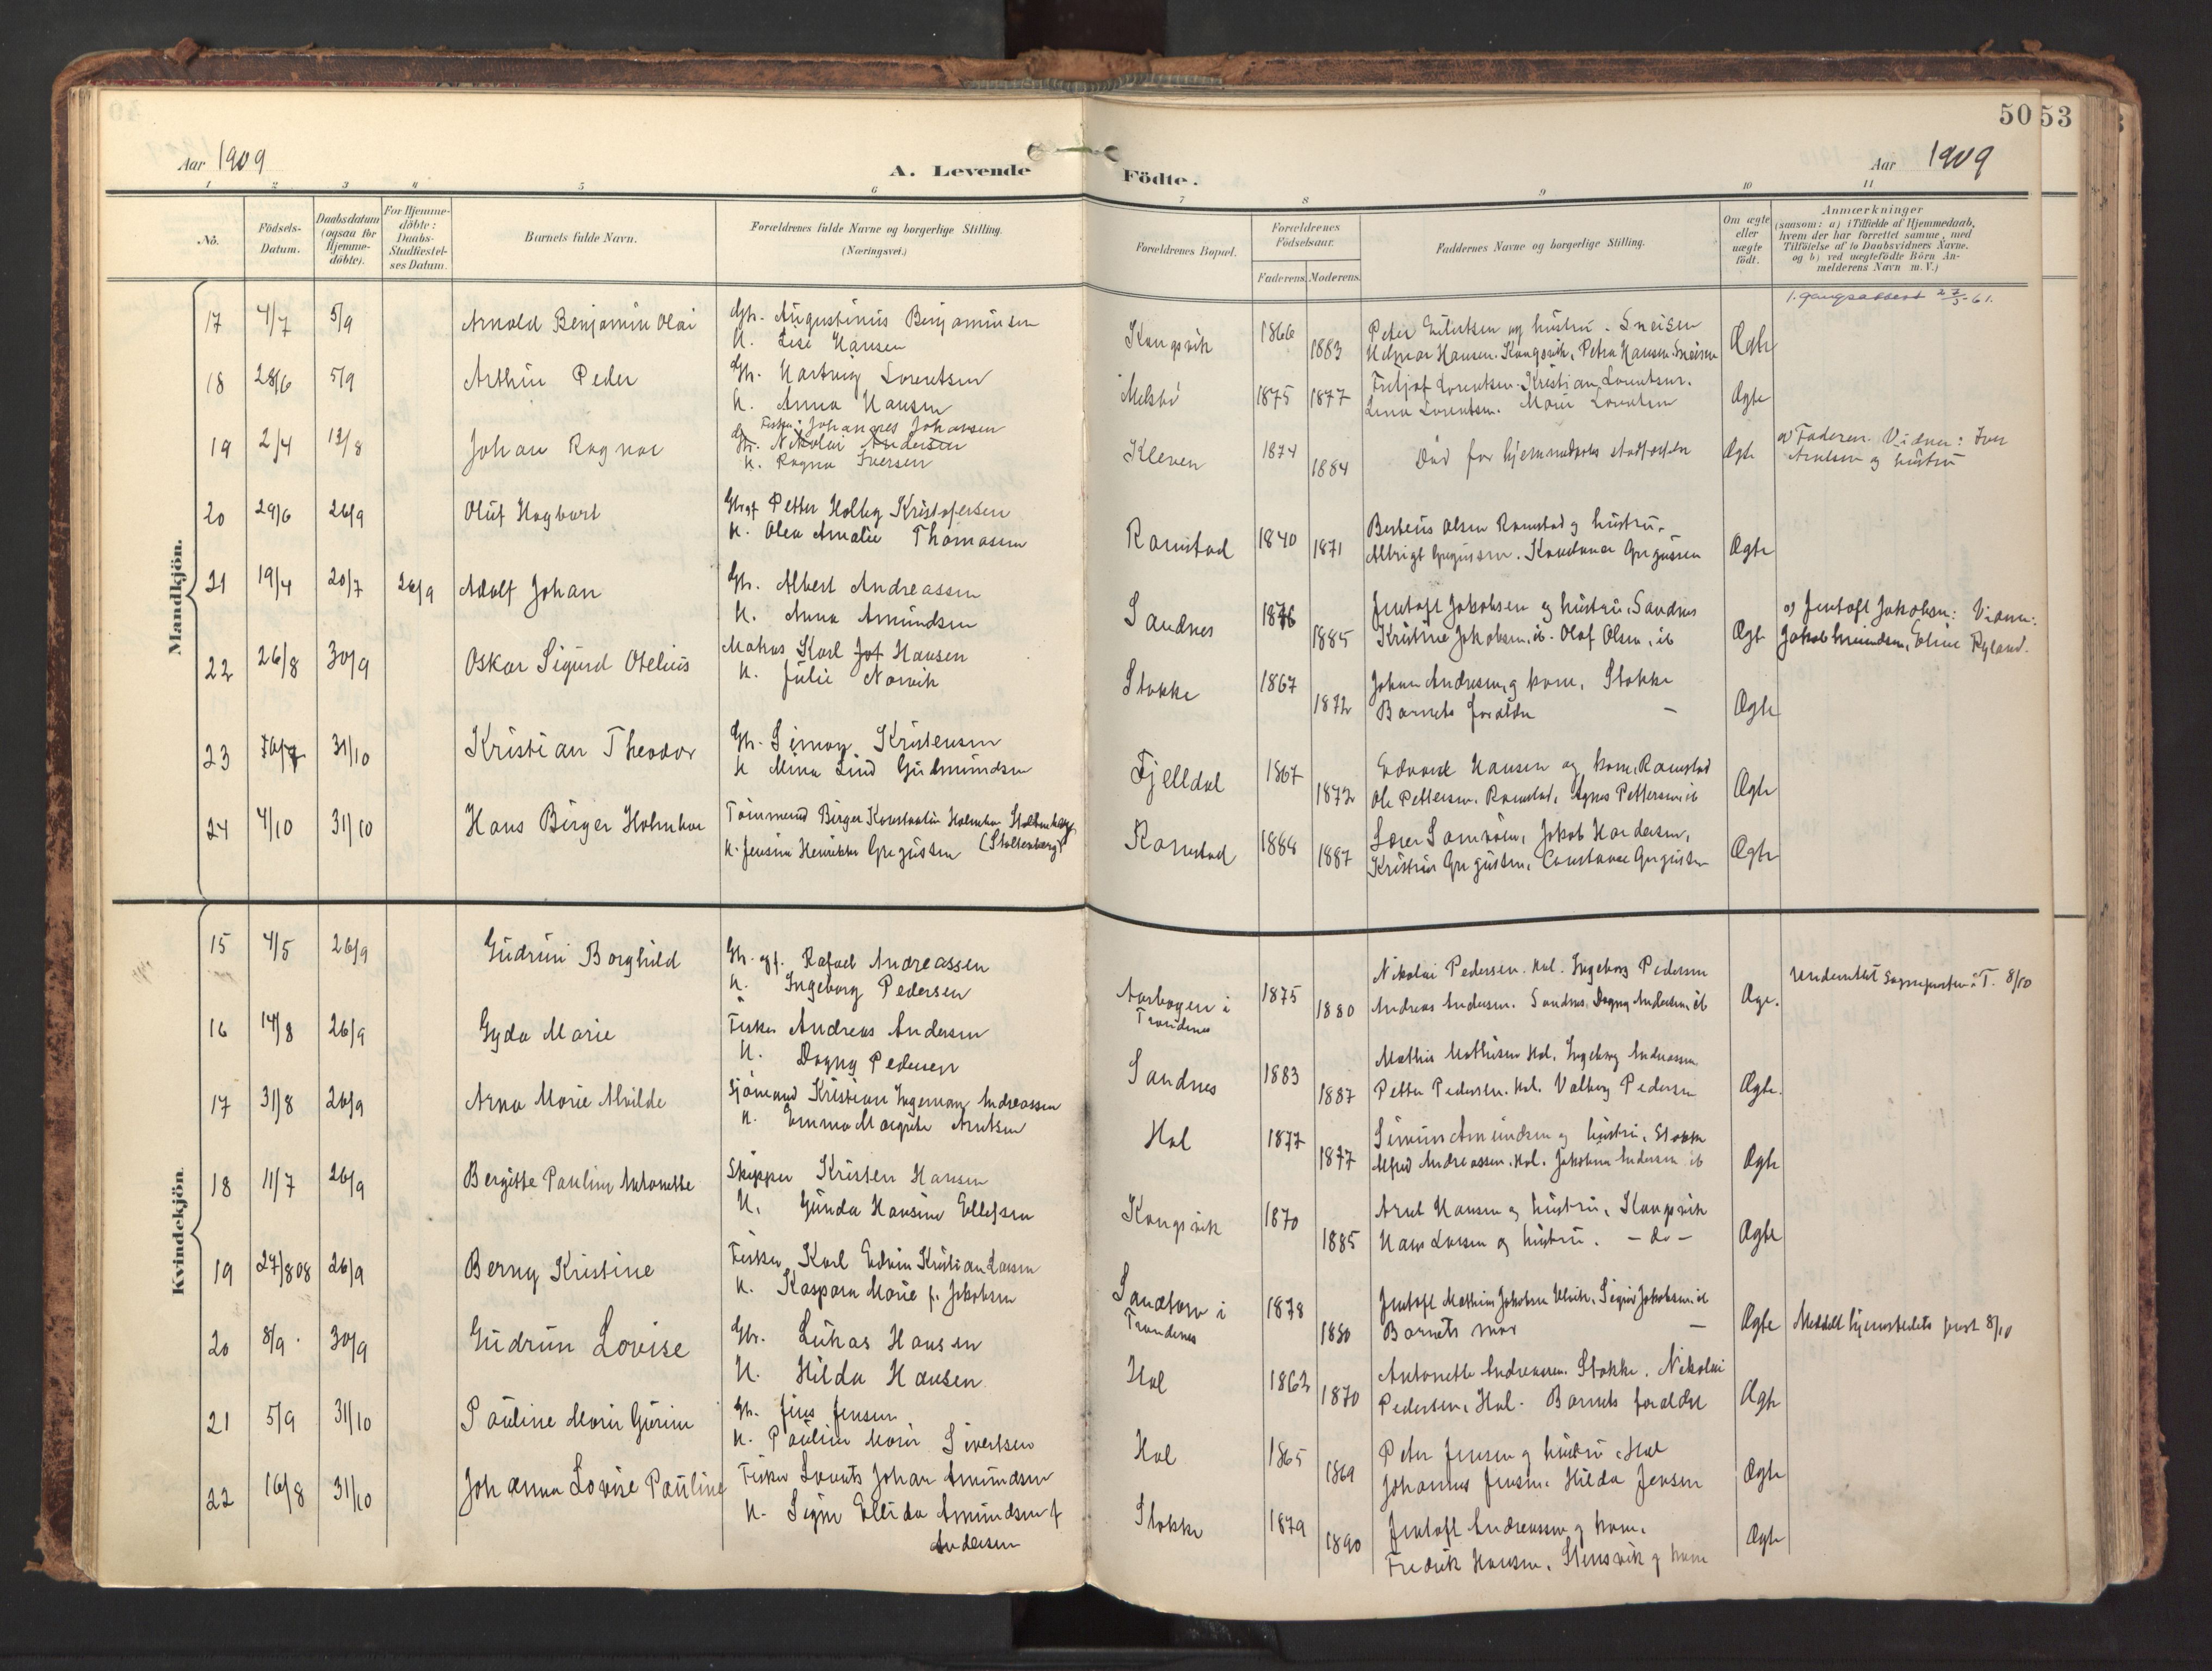 50 53
Aar 1909
A. Levende Födte.
Aar 1909
1 2 3 4 5 6 7 8 9 10 11
No.
Födsels-Datum.
Daabsdatum (ogsaa for Hjemme-döbte).
For Hjemme-döbte: Daabs-Stadfæstel-ses Datum.
Barnets fulde Navn.
Forældrenes fulde Navne og borgerlige Stilling. (Næringsvei.)
Forældrenes Bopæl.
Forældrenes Födselsaar.
Faderens. Moderens.
Faddernes Navne og borgerlige Stilling.
Om ægte eller uægte födt.
Anmærkninger
(saasom: a) i Tilfælde af Hjemmedaab, hvem der har forrettet samme, med Tilföielse af to Daabsvidners Navne. og b) ved uægtefödte Börn An-melderens Navn m. V.)
Mandkjön.
17 4/7 5/9 Arnold Benjamin Olai Gbr. Augustinius Benjaminsen
K. Lise Hansen
Kongsvik 1866 1883 Peter Eilertsen og hustru. Sneisen
Helmar Hansen. Kongsvik, Petra Hansen Sneisen Ægte
18 28/6 5/9 Arthur Peder Gbr. Hartvig Lorentsen
K. Anna Hansen
1875 1877 Fritjof Lorentsen. Kristian Lorentsen.
Lena Lorentsen. Marie Lorentsen Ægte
19 2/4 13/8 Johan Ragnar Fisker Johannes Johansen
Gbr. Nikolai Andersen
K. Ragna Iversen
Kleven 1874 1884 Død før hjemmedaabs stadfæstelse Ægte a) Faderen. Vidner: Iver
Arntsen og hustru
20 29/6 26/9 Oluf Hagbart Petter Holleg Kristofersen
K. Olea Amalie Thomassen
Ramstad 1840 1871 Berteus Olsen Ramstad og hustru.
Albrigt Gregussen. Konstanse Gregussen Ægte
21 19/4 20/7 26/9 Adolf Johan Gbr. Albert Andreassen
K. Anna Amundsen
Sandnes 1876 1885 Jentoft Jakobsen og hustru, Sandnes
Kristine Jakobsen, ib. Olaf Olsen, ib Ægte a) Jentoft Jakobsen: Vidner:
Jakob Amundsen, Eline Ryland.
22 26/8 30/9 Oskar Sigurd Otelius Matros Karl Jof Hansen
K. Julie Norvik
Stokke 1867 1872 Johan Andresen og kone, Stokke
Barnets forældre – Ægte
23 31/10 Kristian Theodor Gbr. Simon Kristensen
K Mina Lind Gudmundsen
Fjelldal 1867 1872 Edvard Hansen og kone, Ramstad
Ole Pettersen. Ramstad, Agnes Pettersen ib Ægte
24 4/10 31/10 Hans Birger Holmboe Tömmermand Birger Konstantin Holmboe Stoltenberg
K. Jensine Henrikke Gregussen (Stoltenberg)
Ramstad 1884 1887 Jakob Hardersen,
Kristine Gregussen, Constanse Gregussen Ægte
Kvindekjön.
15 4/5 26/9 Gudrun Borghild Gbr. Rafael Andreassen
K. Ingeborg Pedersen
Aarbogen i
Trondenes 1875 1880 Nikolai Pedersen. Hol. Ingeborg Pedersen
Andreas Andersen. Sandnes, Dagny Andersen ib Ægte. Underrettet Sogneprsten i T. 8/10
16 14/8 26/9 Gyda Marie Fisker Andreas Andersen
K. Dagny Pedersen
Sandnes 1883 1887 Mathis Mathisen Hol. Ingeborg Andreassen
Petter Pedersen. Hol. Valborg Pedersen Ægte.
17 31/8 26/9 Arna Marie Alvilde Sjömand Kristian Ingemann Andreassen
K. Emma Margrete Arntsen
Hol 1877 1877 Simon Amundsen og hustru, Stokke
Alfred Andreassen. Hol. Jakobine Andersen ib Ægte
18 11/7 26/9 Bergitte Pauline Antonette Skipper Kristen Hansen
K. Gunda Hansine Ellefsen
Kongsvik 1870 1885 Arnt Hansen og hustru, Kongsvik
Hans Larsen og hustru. – do – Ægte
19 27/8 08 26/9 Berny Kristine Fisker Karl Edvin Kristian Larsen
K. Kaspara Marie f. Jakobsen
Sandtorv i
Trondenes 1878 1880 Jentoft Mathias Jakobsen Ulvik. Signe Jakobsen ib
Barnets mor – Ægte Meddelt hjemstedets prest 8/10
20 8/9. 30/9 Gudrun Lovise Gbr. Lukas Hansen
K. Hilda Hansen
Hol 1862 1870 Antonette Andreassen. Stokke. Nikolai
Pedersen, Hol. Barnets forældre Ægte
21 5/9 31/10 Pauline Marie Gurine Gbr. Jens Jensen
K. Pauline Marie Sivertsen
Hol 1865 1869 Peter Jensen og hustru. Hol
Johannes Jensen. Hilda Jensen Ægte
22 16/8 31/10 Johanna Lovise Pauline Fisker Lorents Johan Amundsen
K. Signe Ellida Amundsen f
Andersen
Stokke 1879 1890 Jentoft Andreassen og kone.
Fredrik Hansen, Stensvik og kone Ægte